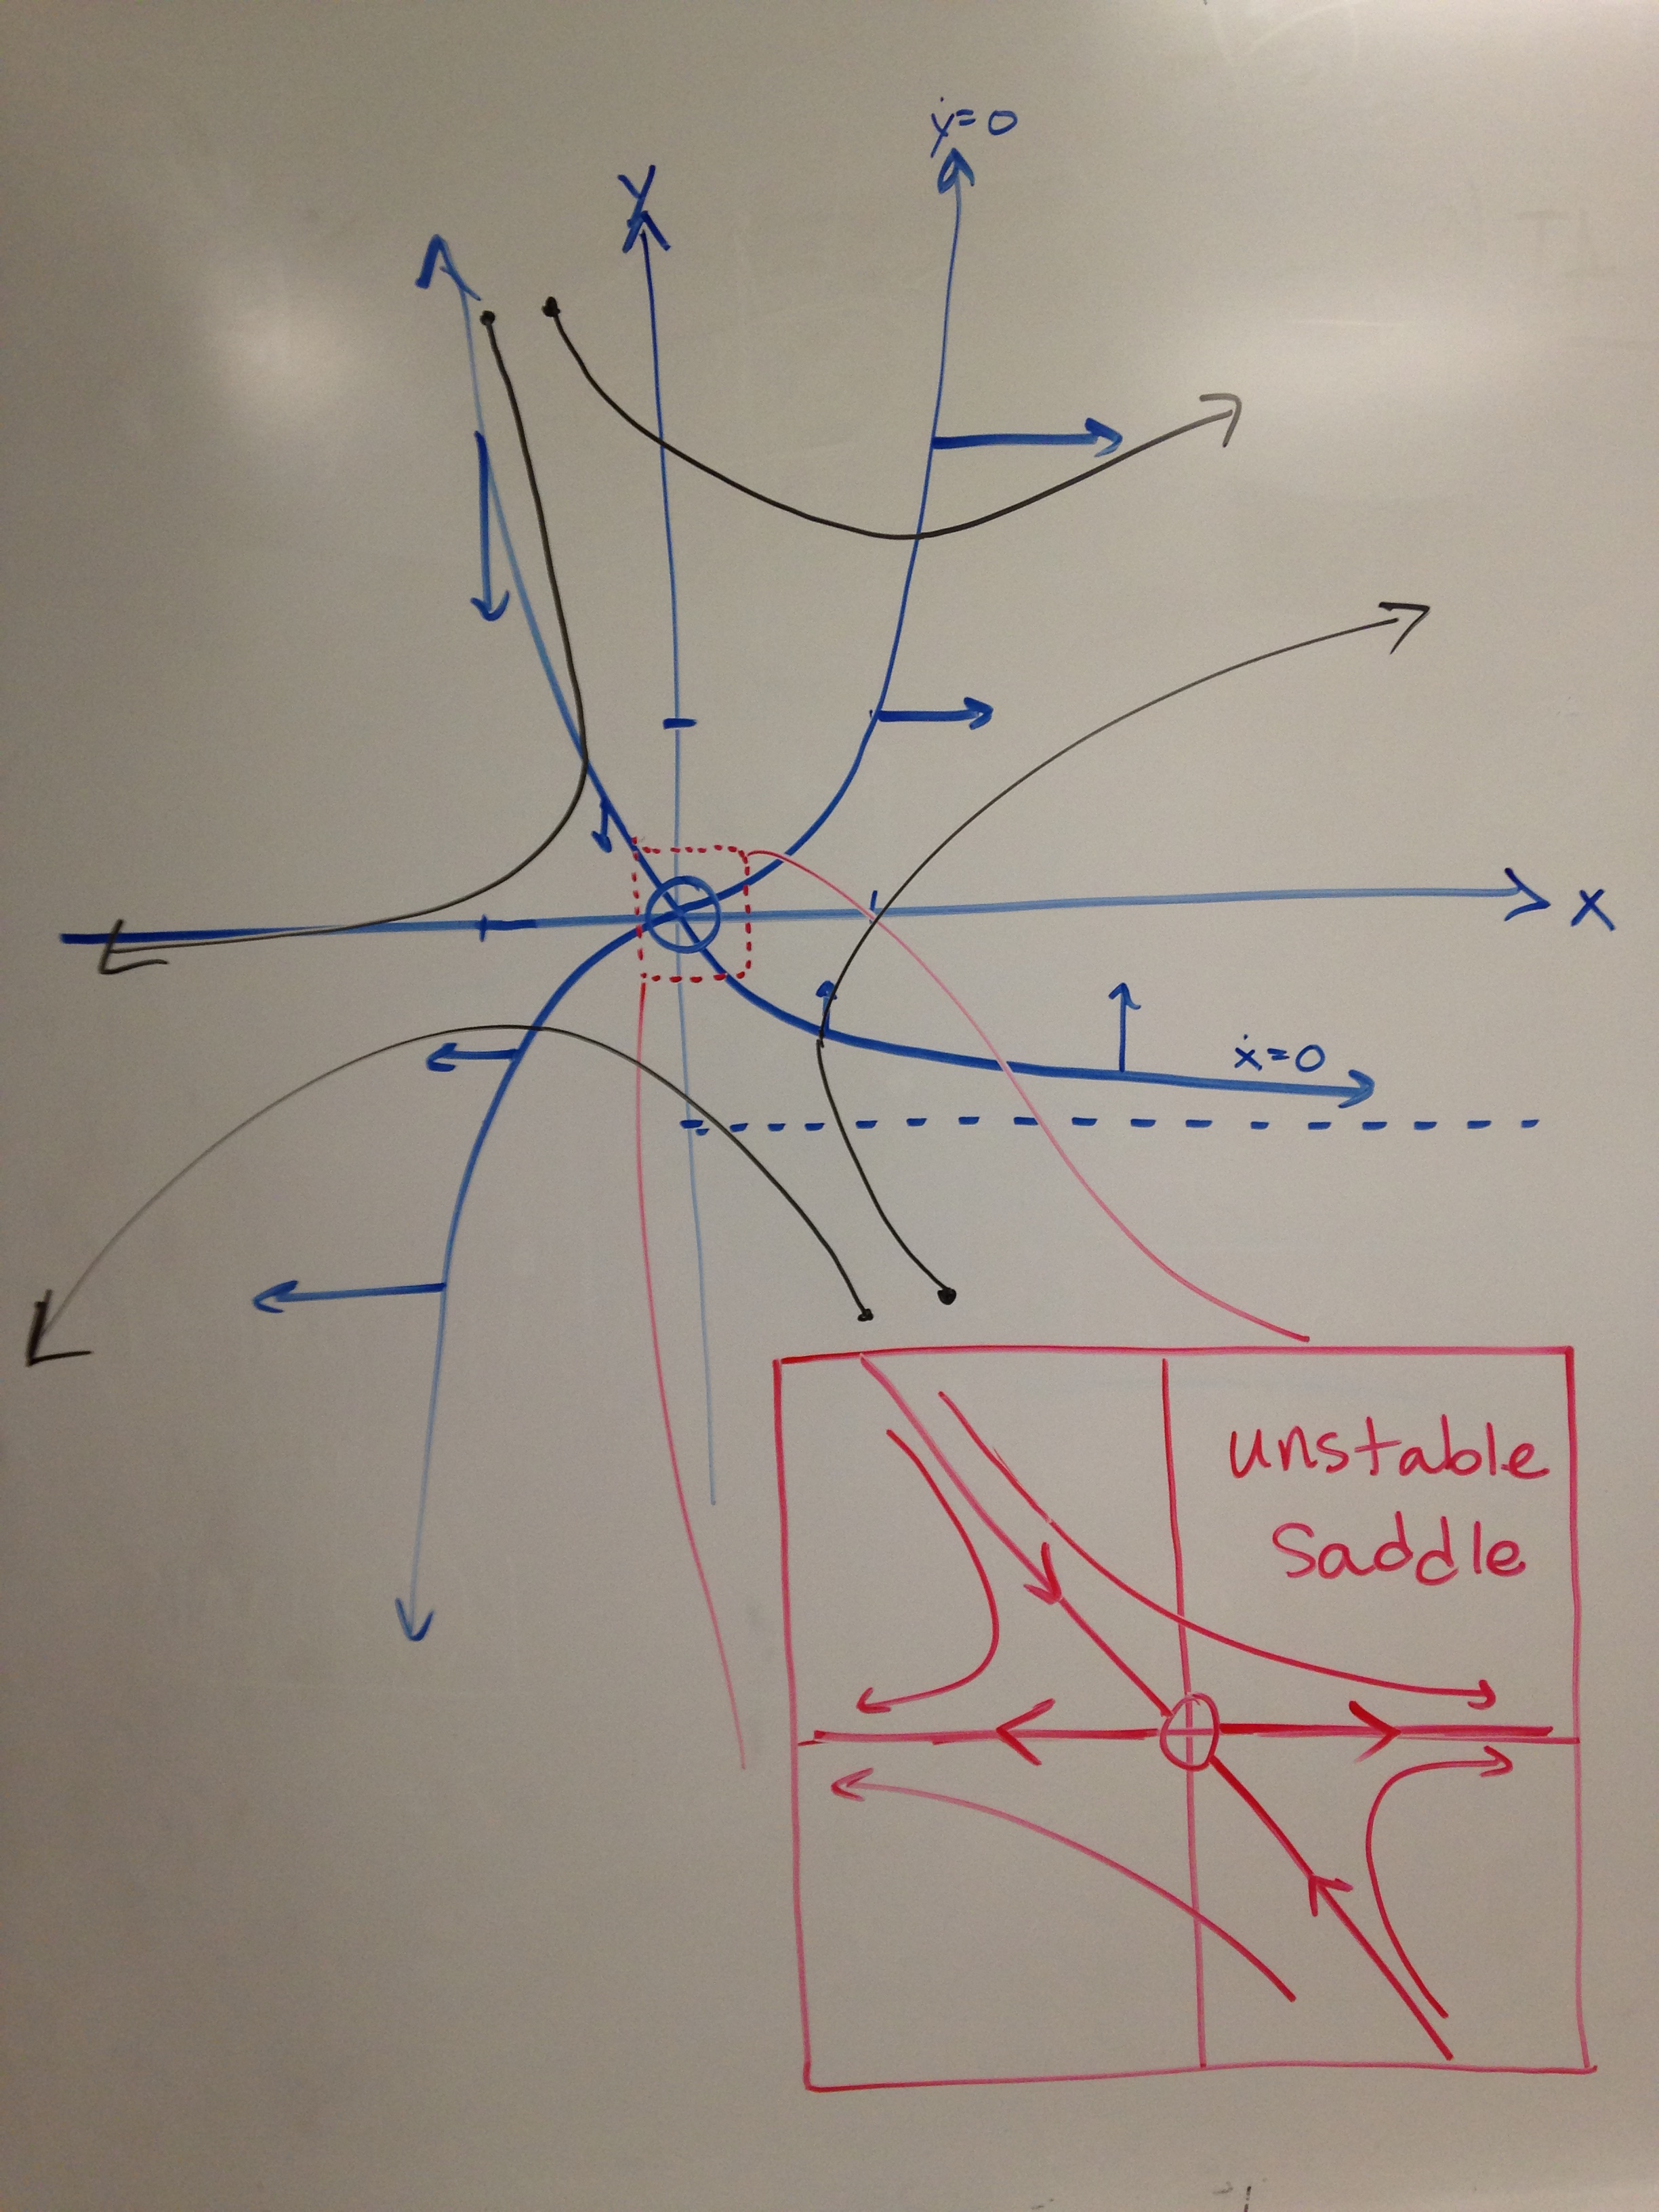 ẏ=0
y
x
ẋ=0
unstable
saddle